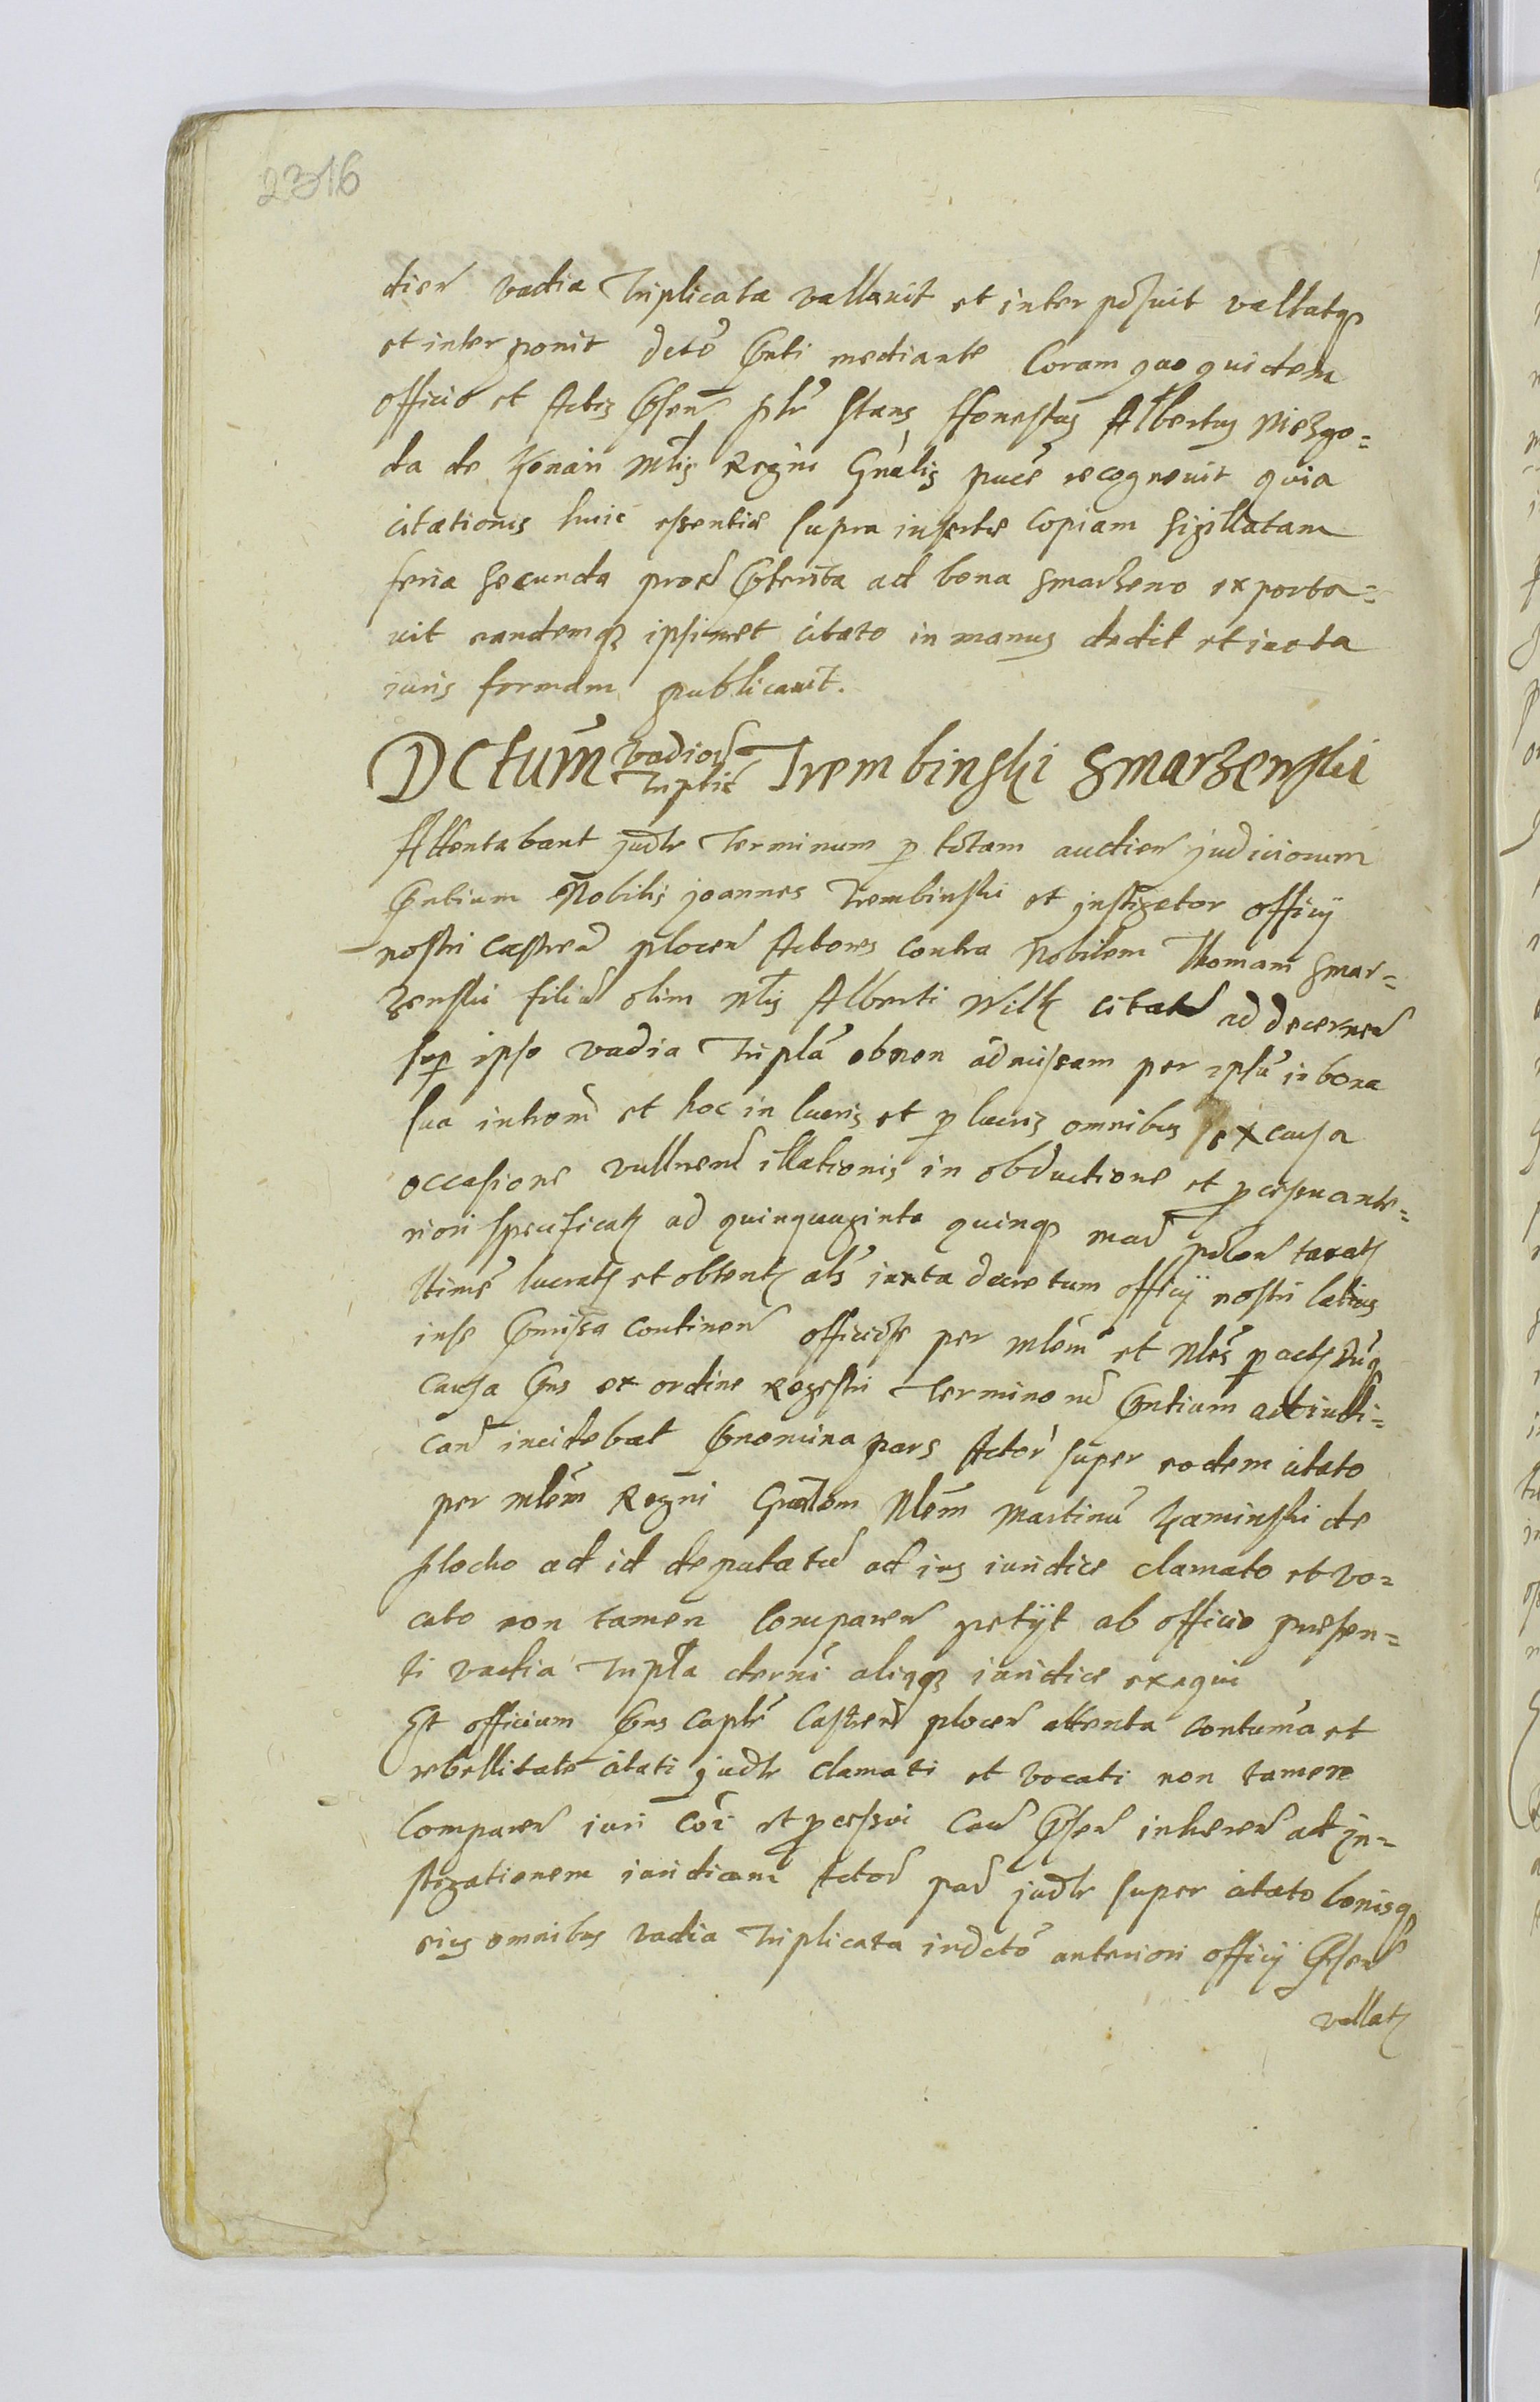 2316
dien vadia Triplicata vallavit et interposuit vallatqȝ
et interponit dcto pnti mediante Coram quo quidem
officio et Actis psen pltr stans Honestus Albertus Niezgo=
da de Konari Mtis Regni Gnalis puce recognovit quia
citationis huic essentiæ supra insertæ Copiam sigillatam
feria secunda prox præterita ad bona Smarzeno exporta=
vit eandemqȝ ipsimet citato in manus dedit et iuxta
iuris formam publicavit.
Dctum vadior Triplic Trembinski Smarzenski
Attentabant judtr Terminum p totam audien judiciorum
pntium Nobilis joannes Trembinski et jnstigator officij
nostri Castren plocen Actores contra Nobilem Thomam Smar=
zenski filiu olim Nlis Alberti Wilk citatu ad decernen
sup ipso vadia Tripla obnon admissam per ipsu in bona
sua introm et hoc in lucris et p lucris omnibus ex causa
occasione vulnerum illationis in obductione et p cessu ante=
riori specificatȝ ad quinquaginta quinqȝ mar polon taxatȝ
ttime lucratȝ et obtentȝ als iuxta decretum officij nostri latius
in se pmissa continen officiose per Mlem et Nles p actȝ Dnqȝ
causa pns ex ordine Regestri Terminorum pntium adiudi=
can incidebat pnomina pars Actor super eodem citato
per Mlem Regni Gnalem Nlem Martinu Kaminski de
plocko ad id deputatu ad ius iuridice clamato et vo=
cato non tamen Comparen petijt ab officio præsen=
ti vadia Tripla cterni aliaqȝ iuridice exequi
Et officium pns Captr Castren plocen attenta contuma et
rebellitate citati judtr clamati et vocati non tamen
Comparen iuri Coi et p cessui Cau psen inheren ad in=
stigationem iuridicam Actor par judtr super citato bonisqȝ
eius omnibus vadia Triplicata in dcto anteriori officij psen
vallatȝ